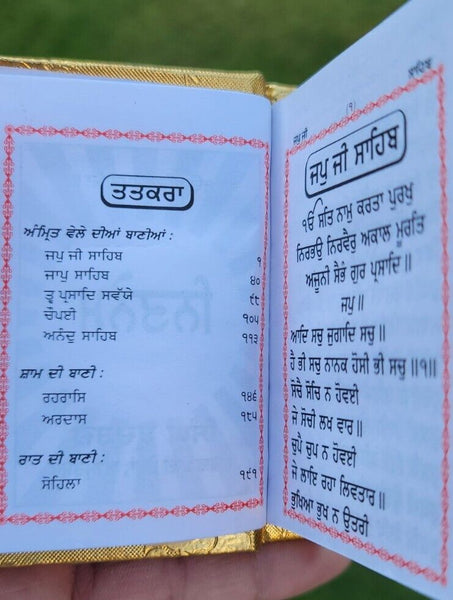 ਤਤਕਰਾ
ਅੰਮ੍ਰਿਤ ਵੇਲੇ ਦੀਆਂ ਬਾਣੀਆਂ :
ਜਪੁ ਜੀ ਸਾਹਿਬ ੧
ਜਾਪੁ ਸਾਹਿਬ ੪੦
ਤ੍ਵ ਪ੍ਰਸਾਦਿ ਸਵੱਯੇ ੯੮
ਚੌਪਈ ੧੦੫
ਅਨੰਦੁ ਸਾਹਿਬ ੧੧੩
ਸ਼ਾਮ ਦੀ ਬਾਣੀ :
ਰਹਰਾਸਿ ੧੪੬
ਅਰਦਾਸ ੧੮੫
ਰਾਤ ਦੀ ਬਾਣੀ :
ਸੋਹਿਲਾ ੧੯੧
ਜਪੁ ਜੀ (੧) ਸਾਹਿਬ
ਜਪੁ ਜੀ ਸਾਹਿਬ
ੴ ਸਤਿ ਨਾਮੁ ਕਰਤਾ ਪੁਰਖੁ
ਨਿਰਭਉ ਨਿਰਵੈਰੁ ਅਕਾਲ ਮੂਰਤਿ
ਅਜੂਨੀ ਸੈਭੰ ਗੁਰ ਪ੍ਰਸਾਦਿ॥
ਜਪੁ॥
ਆਦਿ ਸਚੁ ਜੁਗਾਦਿ ਸਚੁ॥
ਹੈ ਭੀ ਸਚੁ ਨਾਨਕ ਹੋਸੀ ਭੀ ਸਚੁ॥੧॥
ਸੋਚੈ ਸੋਚਿ ਨ ਹੋਵਈ
ਜੇ ਸੋਚੀ ਲਖ ਵਾਰ॥
ਚੁਪੈ ਚੁਪ ਨ ਹੋਵਈ
ਜੇ ਲਾਇ ਰਹਾ ਲਿਵਤਾਰ॥
ਭੁਖਿਆ ਭੁਖ ਨ ਉਤਰੀ